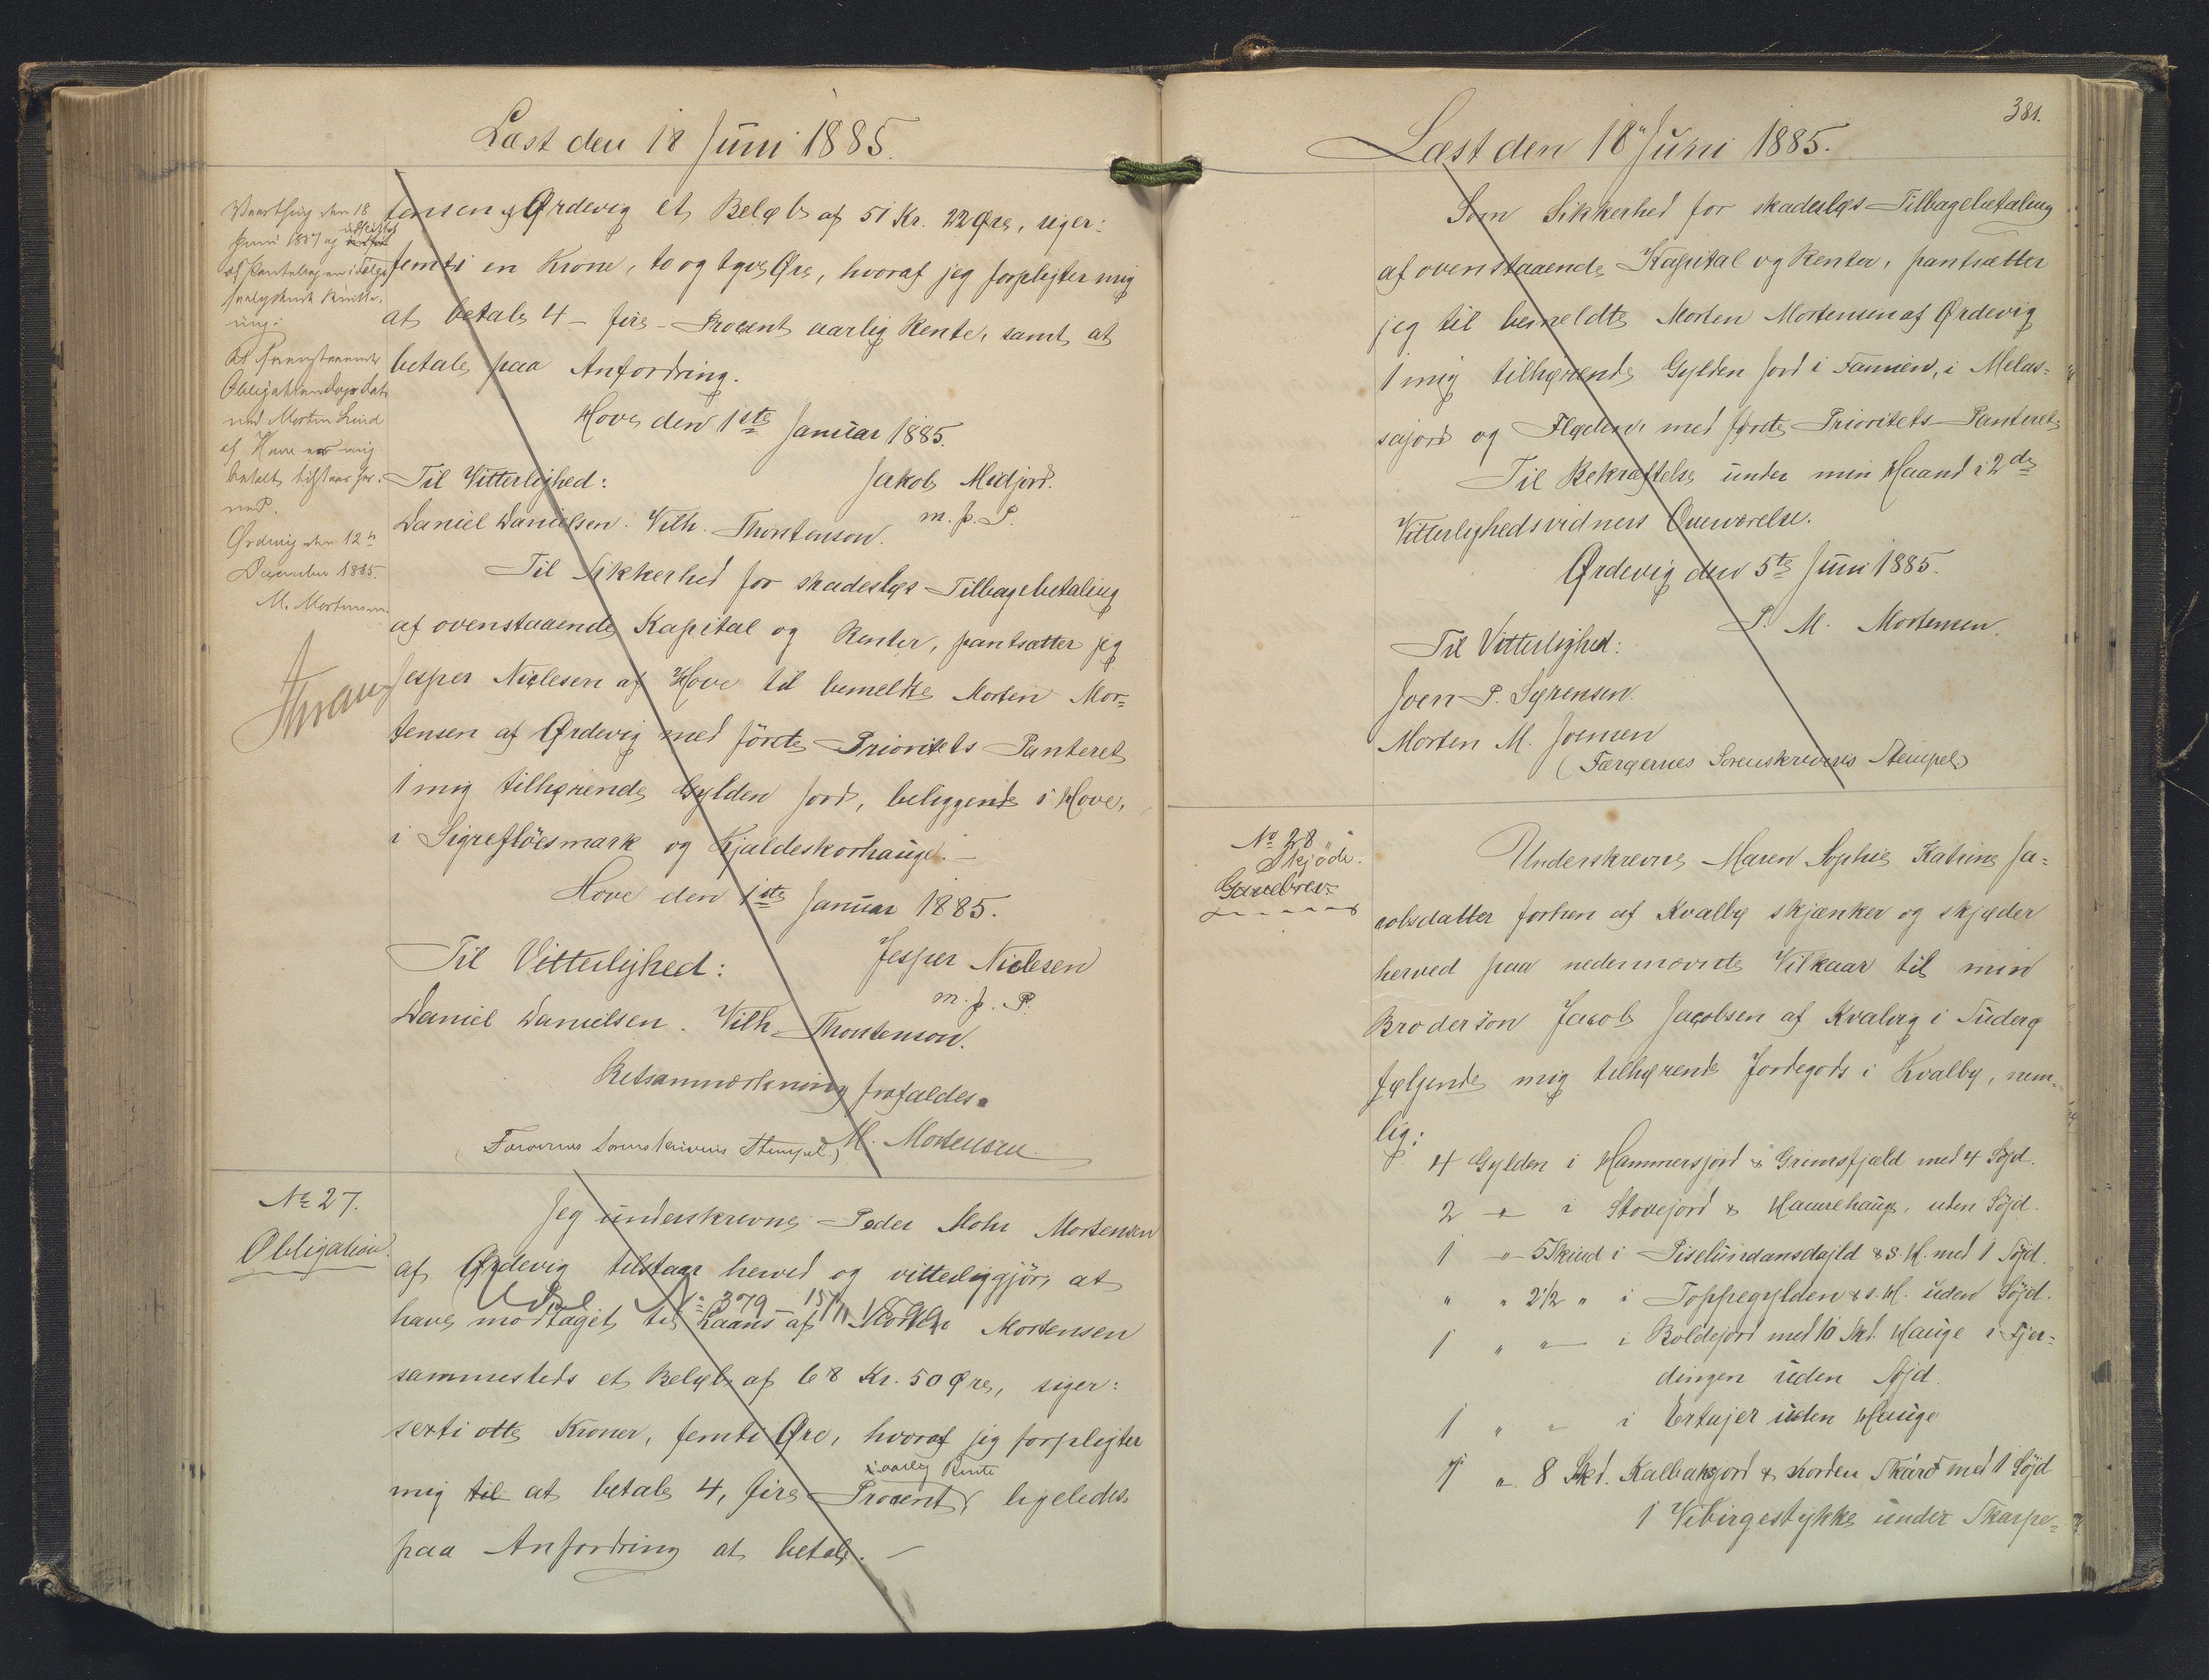 Læst den 18 Juni 1885.
Vaarthing den 18
Juni 1887 og udslettet
af Pantebogen i Følge
saalydende Kvitte-
ring:
At foranstaaende
Obligation
med Morten Lund
af Hove er mig
betalt tilstaar her-
ved.
Ørdevig den 12te
December 1885.
M. Mortensen
tensen af Ørdevig et Beløb af 51 Kr. 22 Øre, siger:
femti en Krone, to og tyve Øre, hvoraf jeg forpligter mig
at betale 4 - fire - Procent aarlig Rente, samt at
betale paa Anfordring.
Hove den 1ste Januar 1885.
Til Vitterlighed: Jakob Midjord.
Daniel Danielsen. Vilh. Thorstenson. m. p. P.
Til Sikkerhed for skadesløs Tilbagebetaling
af ovenstaaende Kapital og Renter, pantsætter jeg
Jesper Nielesen af Hove til bemeldte Morten Mor=
tensen af Ørdevig med förste Prioritets Panteret
1 mig tilhørende Gylden Jord, beliggende i Hove,
i Sigreflöesmark og Kjaldeskorhauge. -
Hove den 1ste Januar 1885.
Til Vitterlighed: Jesper Nielesen
m. p. P.
Daniel Danielsen. Vilh. Thorstenson.
Retsanmærkning frafaldes.
(Færøernes Sorenskriveris Stempel.) M. Mortensen.
No 27.
Obligation.
Jeg underskrevne Peder Mohr Mortensen
af Ørdevig tilstaar herved og vitterliggjör, at
Udsl No 379 - 15/11 1899
have modtaget til Laans af Morten Mortensen
sammesteds et Beløb af 68 Kr. 50 Øre, siger:
sexti otte Kroner, femti Øre, hvoraf jeg forpligter
i aarlig Rente
mig til at betale 4, fire Procent, ligeledes
paa Anfordring at betale. -
381.
Læst den 18 Juni 1885.
Som Sikkerhed for skadesløs Tilbagebetaling
af ovenstaaende Kapital og Renter, pantsætter
jeg til bemeldte Morten Mortensen af Ørdevig
1 mig tilhørende Gylden Jord i Famien, i Melas=
sajord og Fløden, med første Prioritets Panteret
Til Bekræftelse under min Haand i 2de
Vitterlighedsvidners Overværelse.
Ørdevig den 5te Juni 1885.
P. M. Mortensen.
Til Vitterlighed:
Joen P. Sørensen.
Morten M. Joensen
(Færøernes Sorenskriveris Stempel)
No 28
Skjöde.
Gavebrev.
Underskrevne Maren Sophie Katrine Ja=
cobsdatter forhen af Kvalbø skjænker og skjøder
herved paa nedennævnte Vilkaar til min
Brodersön Jacob Jacobsen af Kvalvig i Suderø
følgende mig tilhørende Jordegods i Kvalbø, nem-
lig:
4 Gylden i Hammersjord & Grimsfjæld med 4 Söjd.
2 - " - i Stovejord & Haurehauge, uden Söjd.
1 - " - 5 Skind i Piselundansdajld & s. H. med 1 Söjd.
" " 2 1/2 " i Toppegylden & s. H. uden Söjd.
1 " " - i Boldejord med 10 Skd. Hauge i Fjer=
dingen uden Söjd.
1 " " i Ertajer uden Hauge
7 " 8 Skd. Kalbaksjord & Norden Skård med 1 Söjd
1 Vebirgestykke under Skarpe=